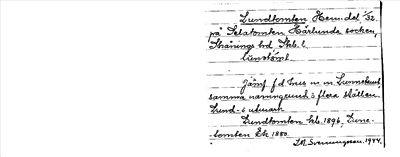 Lundtomten Hem.del 1/32
på Selatomten Härlunda socken,
Skånings hd Skb. l.
Civstomt
Jämf. f.d. hus n. n. Lunnekull,
samma namngrund i flera ställen
Lund- i utmark.
Lundtomten hk. 1896, Lunne-
tomten Ek 1880.
J.A. Svenungsson. 1944.